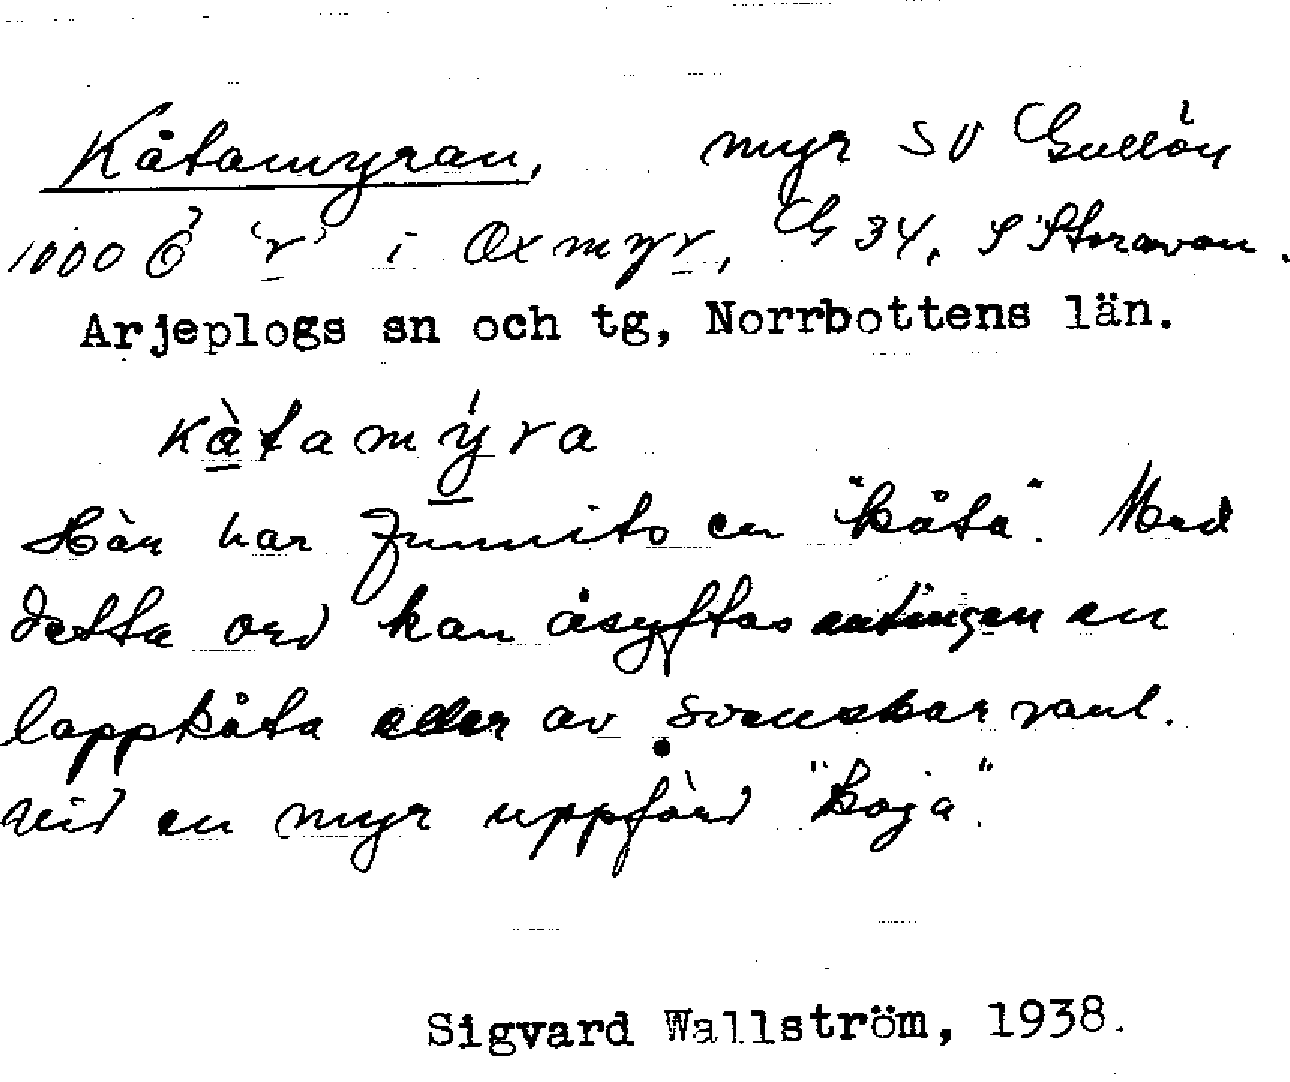 Kåtamyran, myr SV Gullön
1000 Ö 'r' i Oxmyr, G 34, S Storavan.
Arjeplogs sn och tg, Norrbottens län.
kàtamýra
Här har funnits en "kåta". Med
detta ord kan åsyftas antingen en
lappkåta eller av svenskar vanl.
vid en myr uppförd "koja".
Sigvard Wallström, 1938.